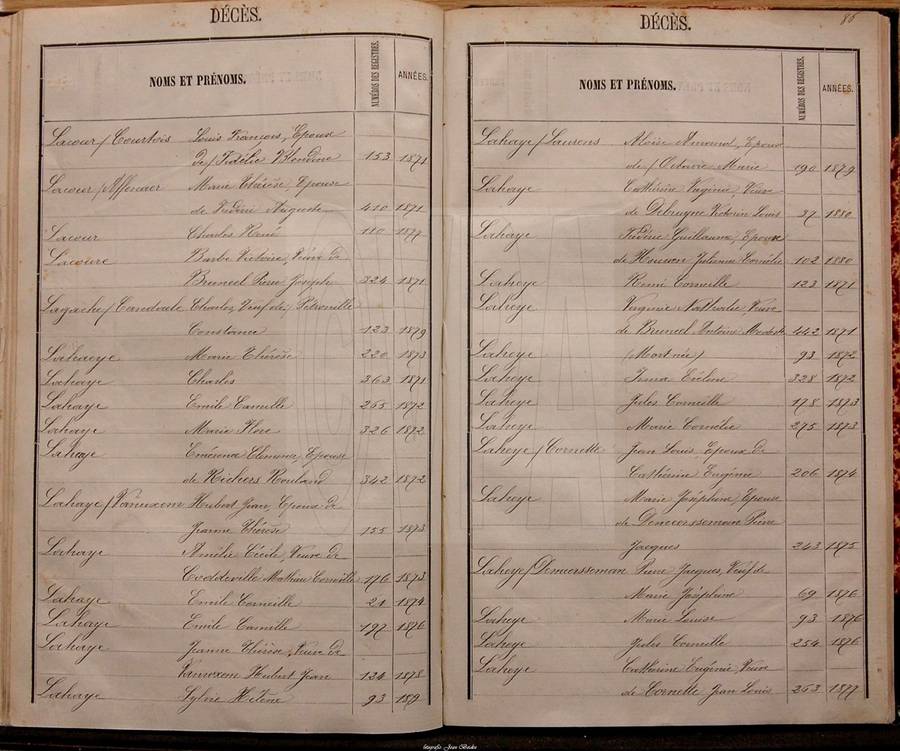 DÉCÈS.
NOMS ET PRÉNOMS. NUMÉROS DES REGISTRES. ANNÉES.
Lacour / Courtois Louis François, Epoux
de Fidélie Blondine 153 1871
Lacour / Marie Thérèse, Epouse
de Auguste 410 1871
Lacour Charles René 110 1877
Lacoure Barbe Victoire, Veuve de
Bruneel Pierre Joseph 324 1871
Lagache / Candaele Charles, Veuf de Pétronille
Constance 123 1879
Lahaeye Marie Thérèse 220 1873
Lahaye Charles 363 1871
Lahaye Emile Camille 265 1872
Lahaye Marie Flore 326 1872
Lahaye Clemence, Epouse
de Richers Rouland 342 1872
Lahaye / Vanuxem Hubert Jean, Epoux de
Jeanne Thérèse 155 1873
Lahaye Amélie Cécile, Veuve de
Mathieu Corneille 176 1873
Lahaye Emile Corneille 21 1874
Lahaye Emile Camille 197 1876
Lahaye Jeanne Thérèse, Veuve de
Vanuxem Hubert Jean 124 1878
Lahaye Sylvie Hélène 93 187
DÉCÈS. 86
NOMS ET PRÉNOMS. NUMÉROS DES REGISTRES. ANNÉES.
Lahaye / Laurens Aloïse Amand, Epoux
de Octavie Marie 190 1879
Lahaye Cathérine Virginie, Veuve
de Debruyne Victorin Louis 37 1880
Lahaye Guillaume, Epoux
de Julienne Cornélie 102 1880
Laheye Rémi Corneille 123 1871
Laheye Virginie Nathalie, Veuve
de Bruneel Antoine 442 1871
Laheye (Mort-née) 93 1872
Laheye Irma Eveline 328 1872
Laheye Jules Corneille 178 1873
Laheye Marie Cornélie 275 1873
Laheye / Cornette Jean Louis, Epoux de
Cathérine Eugénie 206 1874
Laheye Marie Joséphine, Epouse
de Demeersseman Pierre
Jacques 243 1875
Laheye / Demeersseman Pierre Jacques, Veuf de
Marie Joséphine 69 1876
Laheye Marie Louise 93 1876
Laheye Jules Camille 254 1876
Laheye Catherine Eugénie, Veuve
de Cornette Jean Louis 263 1877